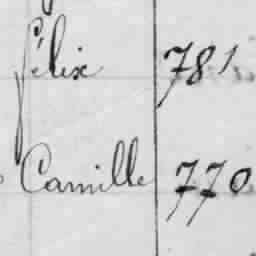 félix 781
Camille 770